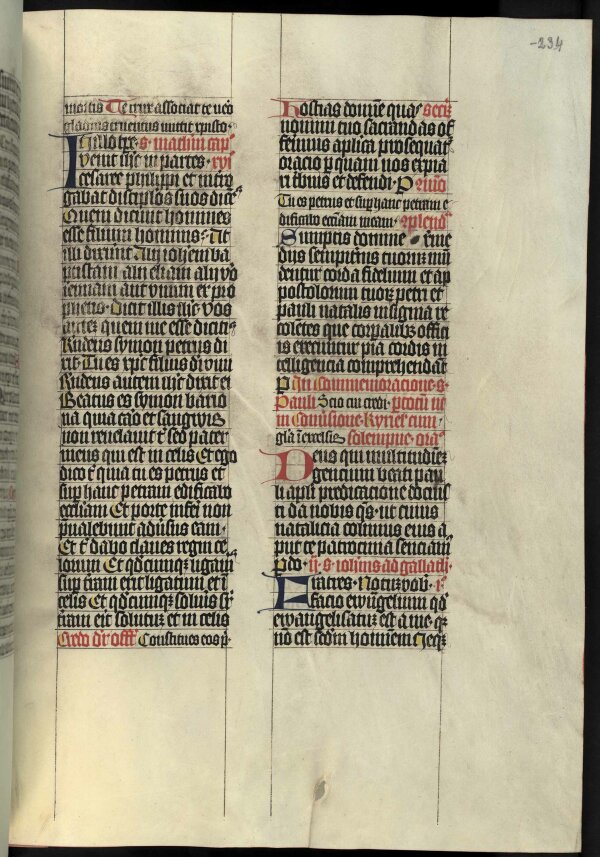 -234
mortis Te crux associat te vero
gladius cruentus mittit xpisto·
In illo tpr· s· mathm cap
Venit ihc in partes· xvi
cesaree philippi et intro
gabat discipulos suos dicens
Quem dicunt homines
esse filium hominis· At
illi dixerunt Alij iohem ba
ptistam alij eliam alij vero
ieremiam aut unum ex pro
phetis· Dicit illis ihc vos
autem quem me esse dicitis
Rndens symon petrus di
xit Tu es xpc filius di vivi
Rndens autem ihc dixit ei
Beatus es symon bario
na quia caro et sanguis
non revelavit t sed pater
meus qui est in celis Et ego
dico t quia tu es petrus et
sup hanc petram edificabo
eccliam Et porte inferi non
prevalebunt adversus eam·
Et t dabo claves regni ce
lorum Et qdcumqz ligaveris
sup tram erit ligatum et in
celis Et qdcumqz solveris sr
tram erit solutum et in celis
Credo dr offr Constitues eos p
Hostias domine quas secr
nomini tuo sacrandas of
ferimus aplica prosequatur
oracio p quam nos expia
ri tbuis et defendi· P Comio
Tu es petrus et sup hanc petram e
dificabo ecciam meam· 9plendo
Sumptis domine reme
dijs sempiternis tuorum mun
dentur corda fidelium et ap
postolorum tuorum petri et
pauli natalis insignia re
colentes que corpalibz offici
is exequitur pia cordis in
telligencia comprehendat
P Jn Commemoracione s·
Pauli Scio cui credi· ptotum ut
in Conversione Kyriel cum
gla in excelsis solempne· ora
Deus qui multitudinem
gencium beati pau
li apli predicacione docuis
ti da nobis qs· ut cuius
natalicia colimus eius a
put te patrocinia senciam
P do· li· s· iohnis ad gallath·
Fratres· Notum vob· i·
facio ewangelium qd
ewangelisatum est a me· qz
no est scdm hominem Neqz